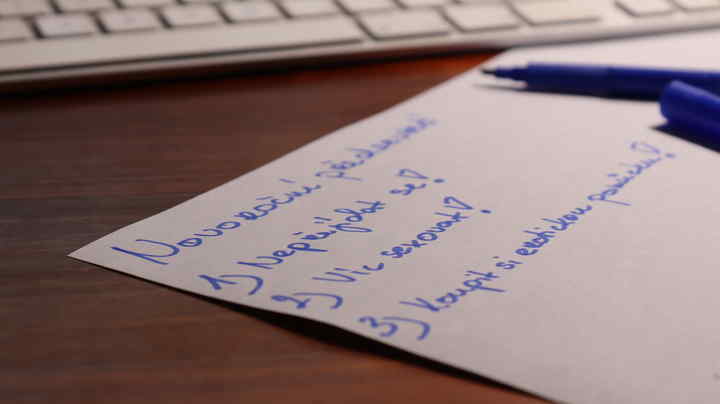 Novoroční předsevzetí
1) Nepřijídat se!
2) Víc sexovat!
3) Koupit si erotickou pomůcku!